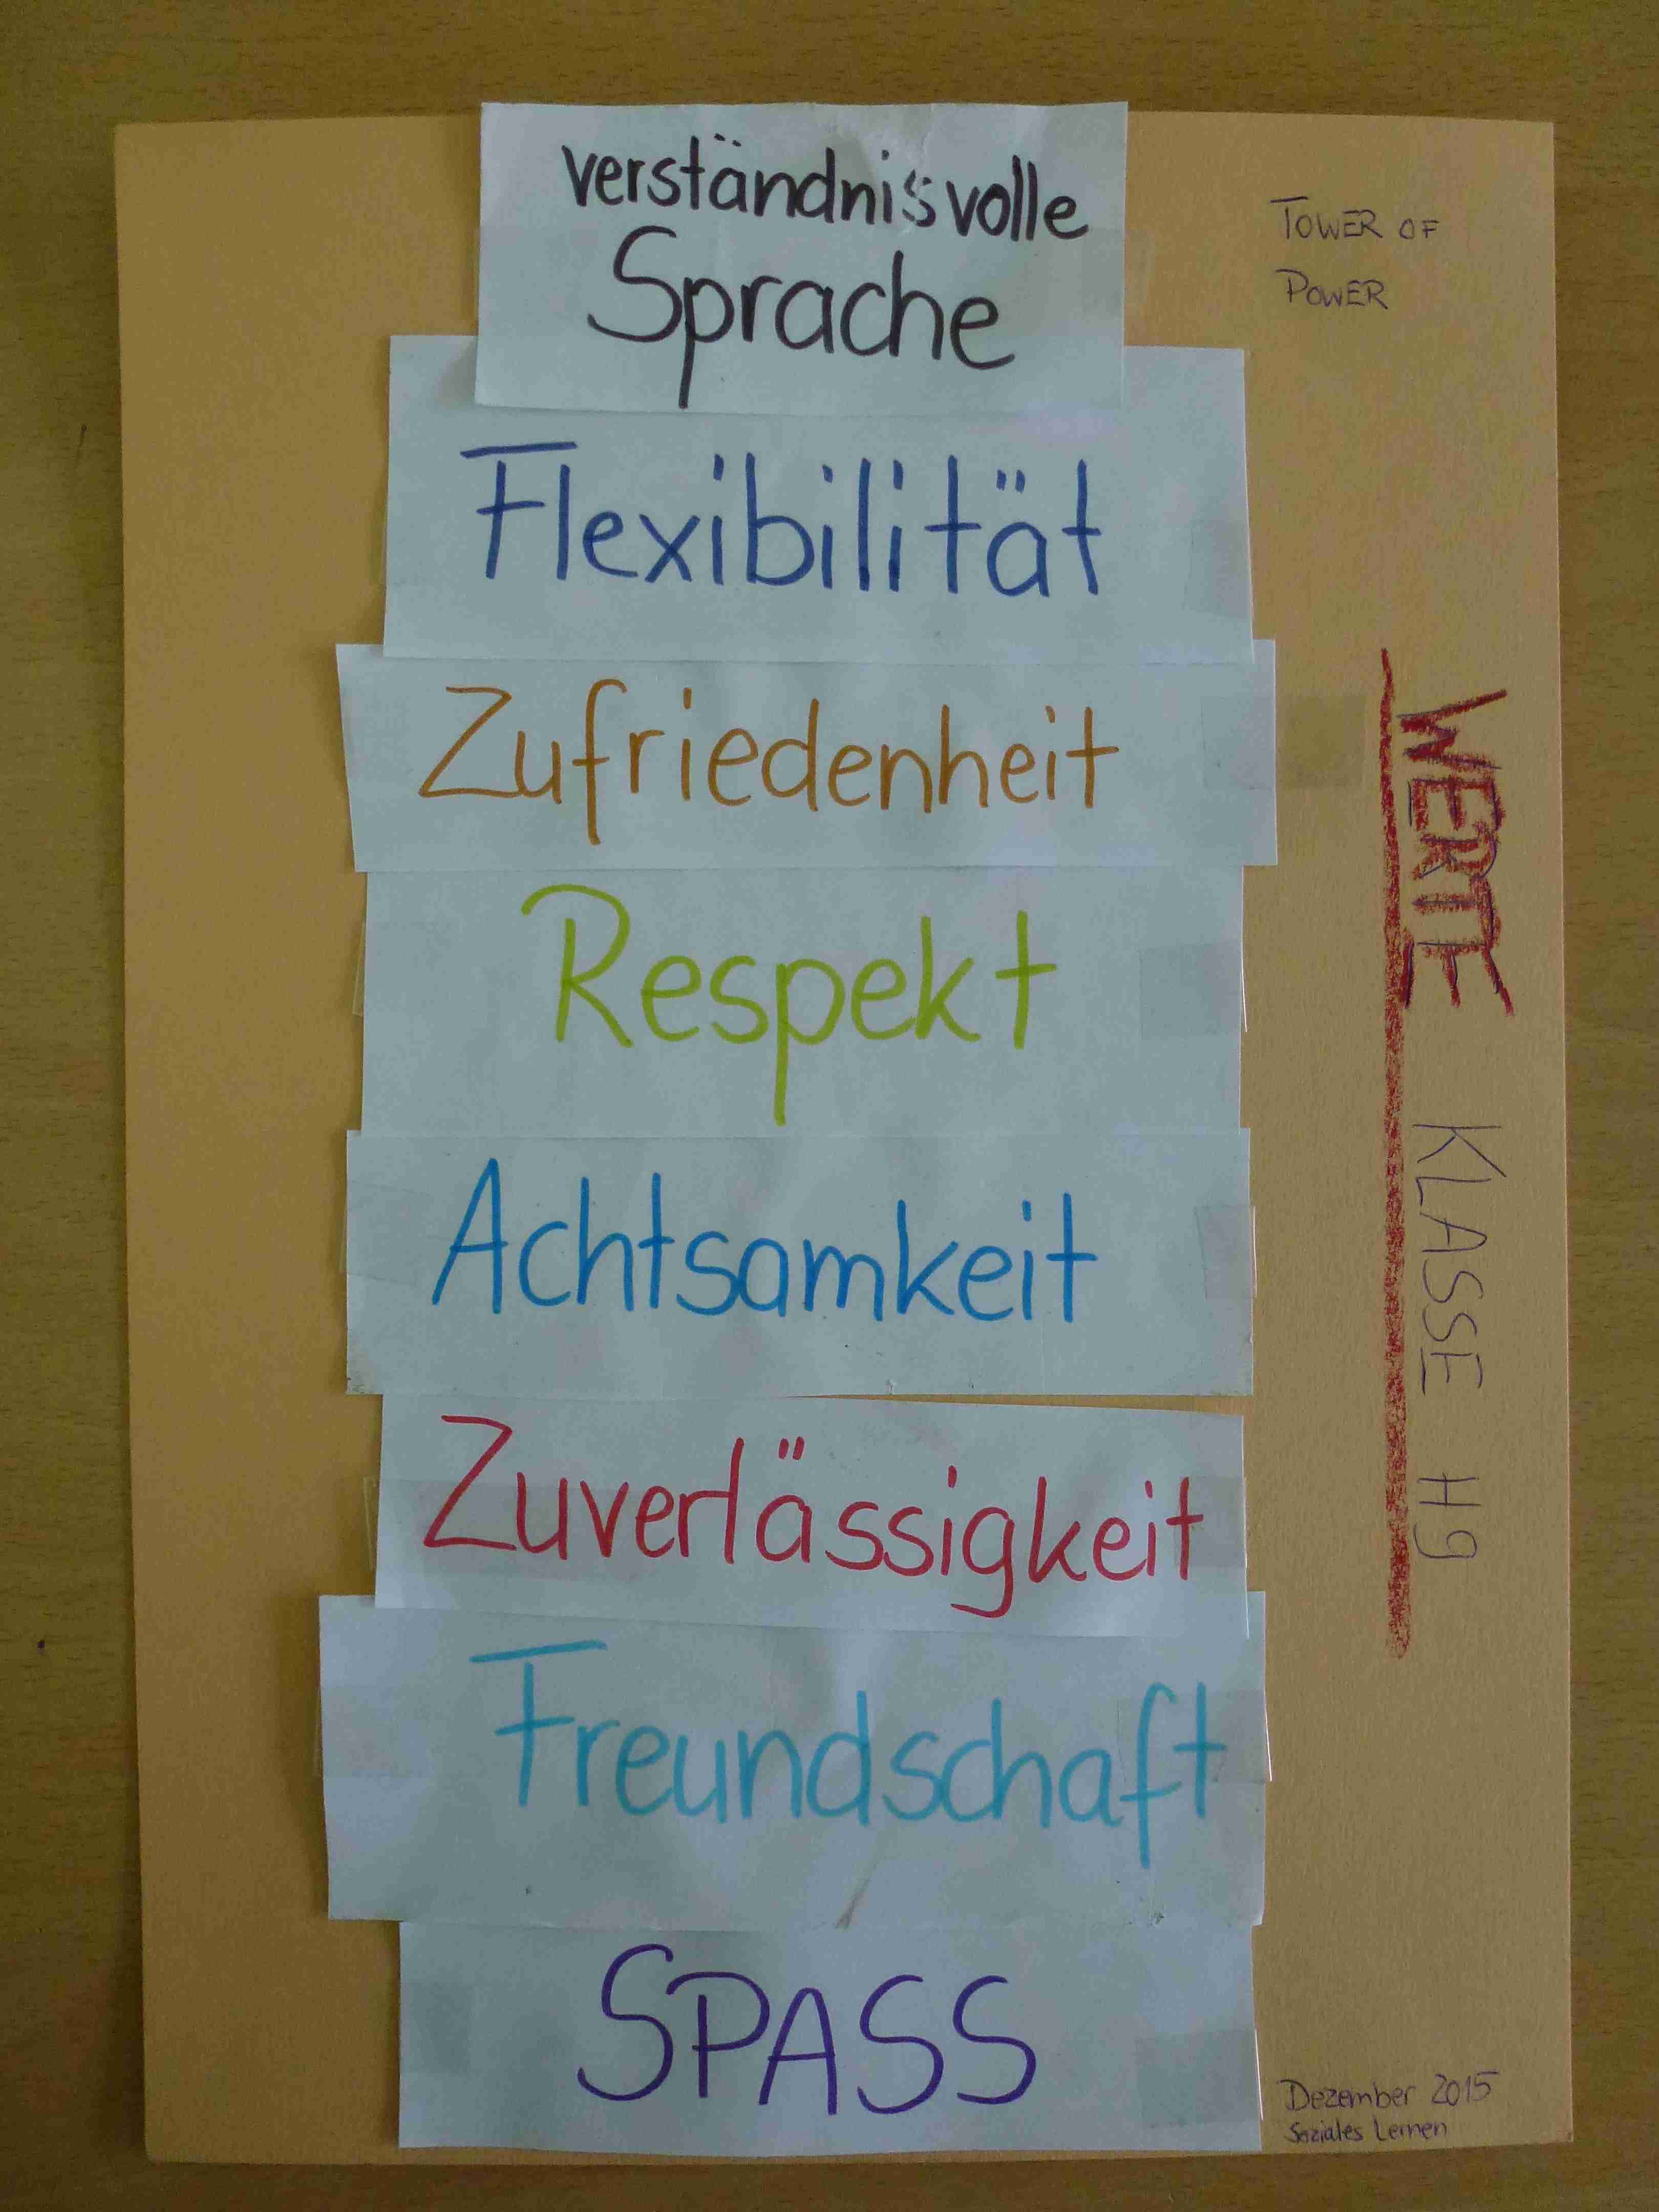 verständnisvolle
Sprache
TOWER OF
POWER
Flexibilität
Zufriedenheit
Respekt
Achtsamkeit
Zuverlässigkeit
Freundschaft
SPASS
WERTE KLASSE H9
Dezember 2015
Soziales Lernen